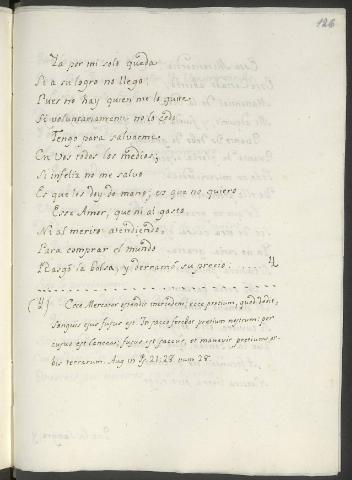 126
Ya por mi solo queda
Si a su logro no llego;
Pues no hay quien me lo quite
Si voluntariamente no lo cedo.
Tengo para salvarme
En Vos todos los medios;
Si infeliz no me salvo
Es que les doy de mano; es que no quiero.
Esse Amor, que ni al gasto
Ni al merito atendiendo,
Para comprar el mundo
Rasgó la bolsa, y derramó su precio:
Ecce Mercator ostendit mercedem; ecce pretium, quod dedit,
Sanguis ejus fusus est. In sacco ferebat pretium nostrum: per
cusus est lancea; fusus est saccus, et manavit pretium or
bis terrarum. Aug in Ps. 21: 28. num 28.